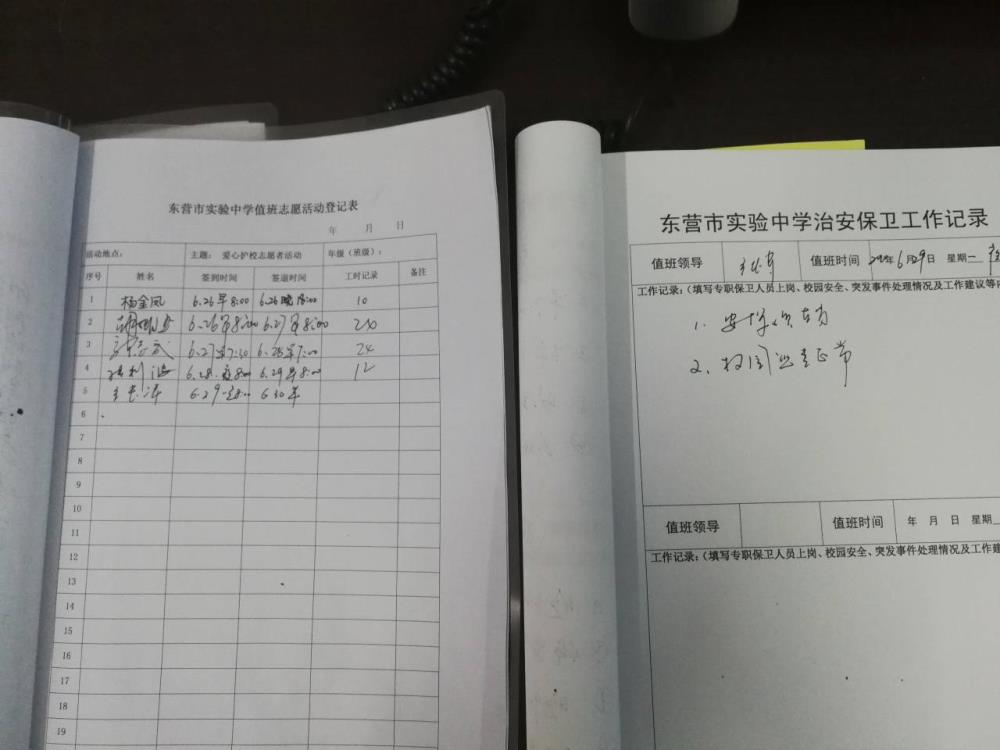 东营市实验中学值班志愿活动登记表
年 月 日
活动地点: 主题: 爱心护校志愿者活动 年级(班级):
序号 姓名 签到时间 签退时间 工时记录 备注
1 杨金凤 6.26早8:00 6.26晚18:00 10
2 6.26早8:00 6.27早8:00
3 6.27早7:30 6.28早7:00 24
4 6.28.夜8:00 6.29早8:00 12
5 6.29 6.30早
6
7
8
9
10
11
12
13
14
15
16
17
18
19
东营市实验中学治安保卫工作记录
值班领导 值班时间 年6月29日 星期一
工作记录:(填写专职保卫人员上岗、校园安全、突发事件处理情况及工作建议等内
1. 安保
2. 校园巡查正常
值班领导 值班时间 年 月 日 星期
工作记录:(填写专职保卫人员上岗、校园安全、突发事件处理情况及工作建